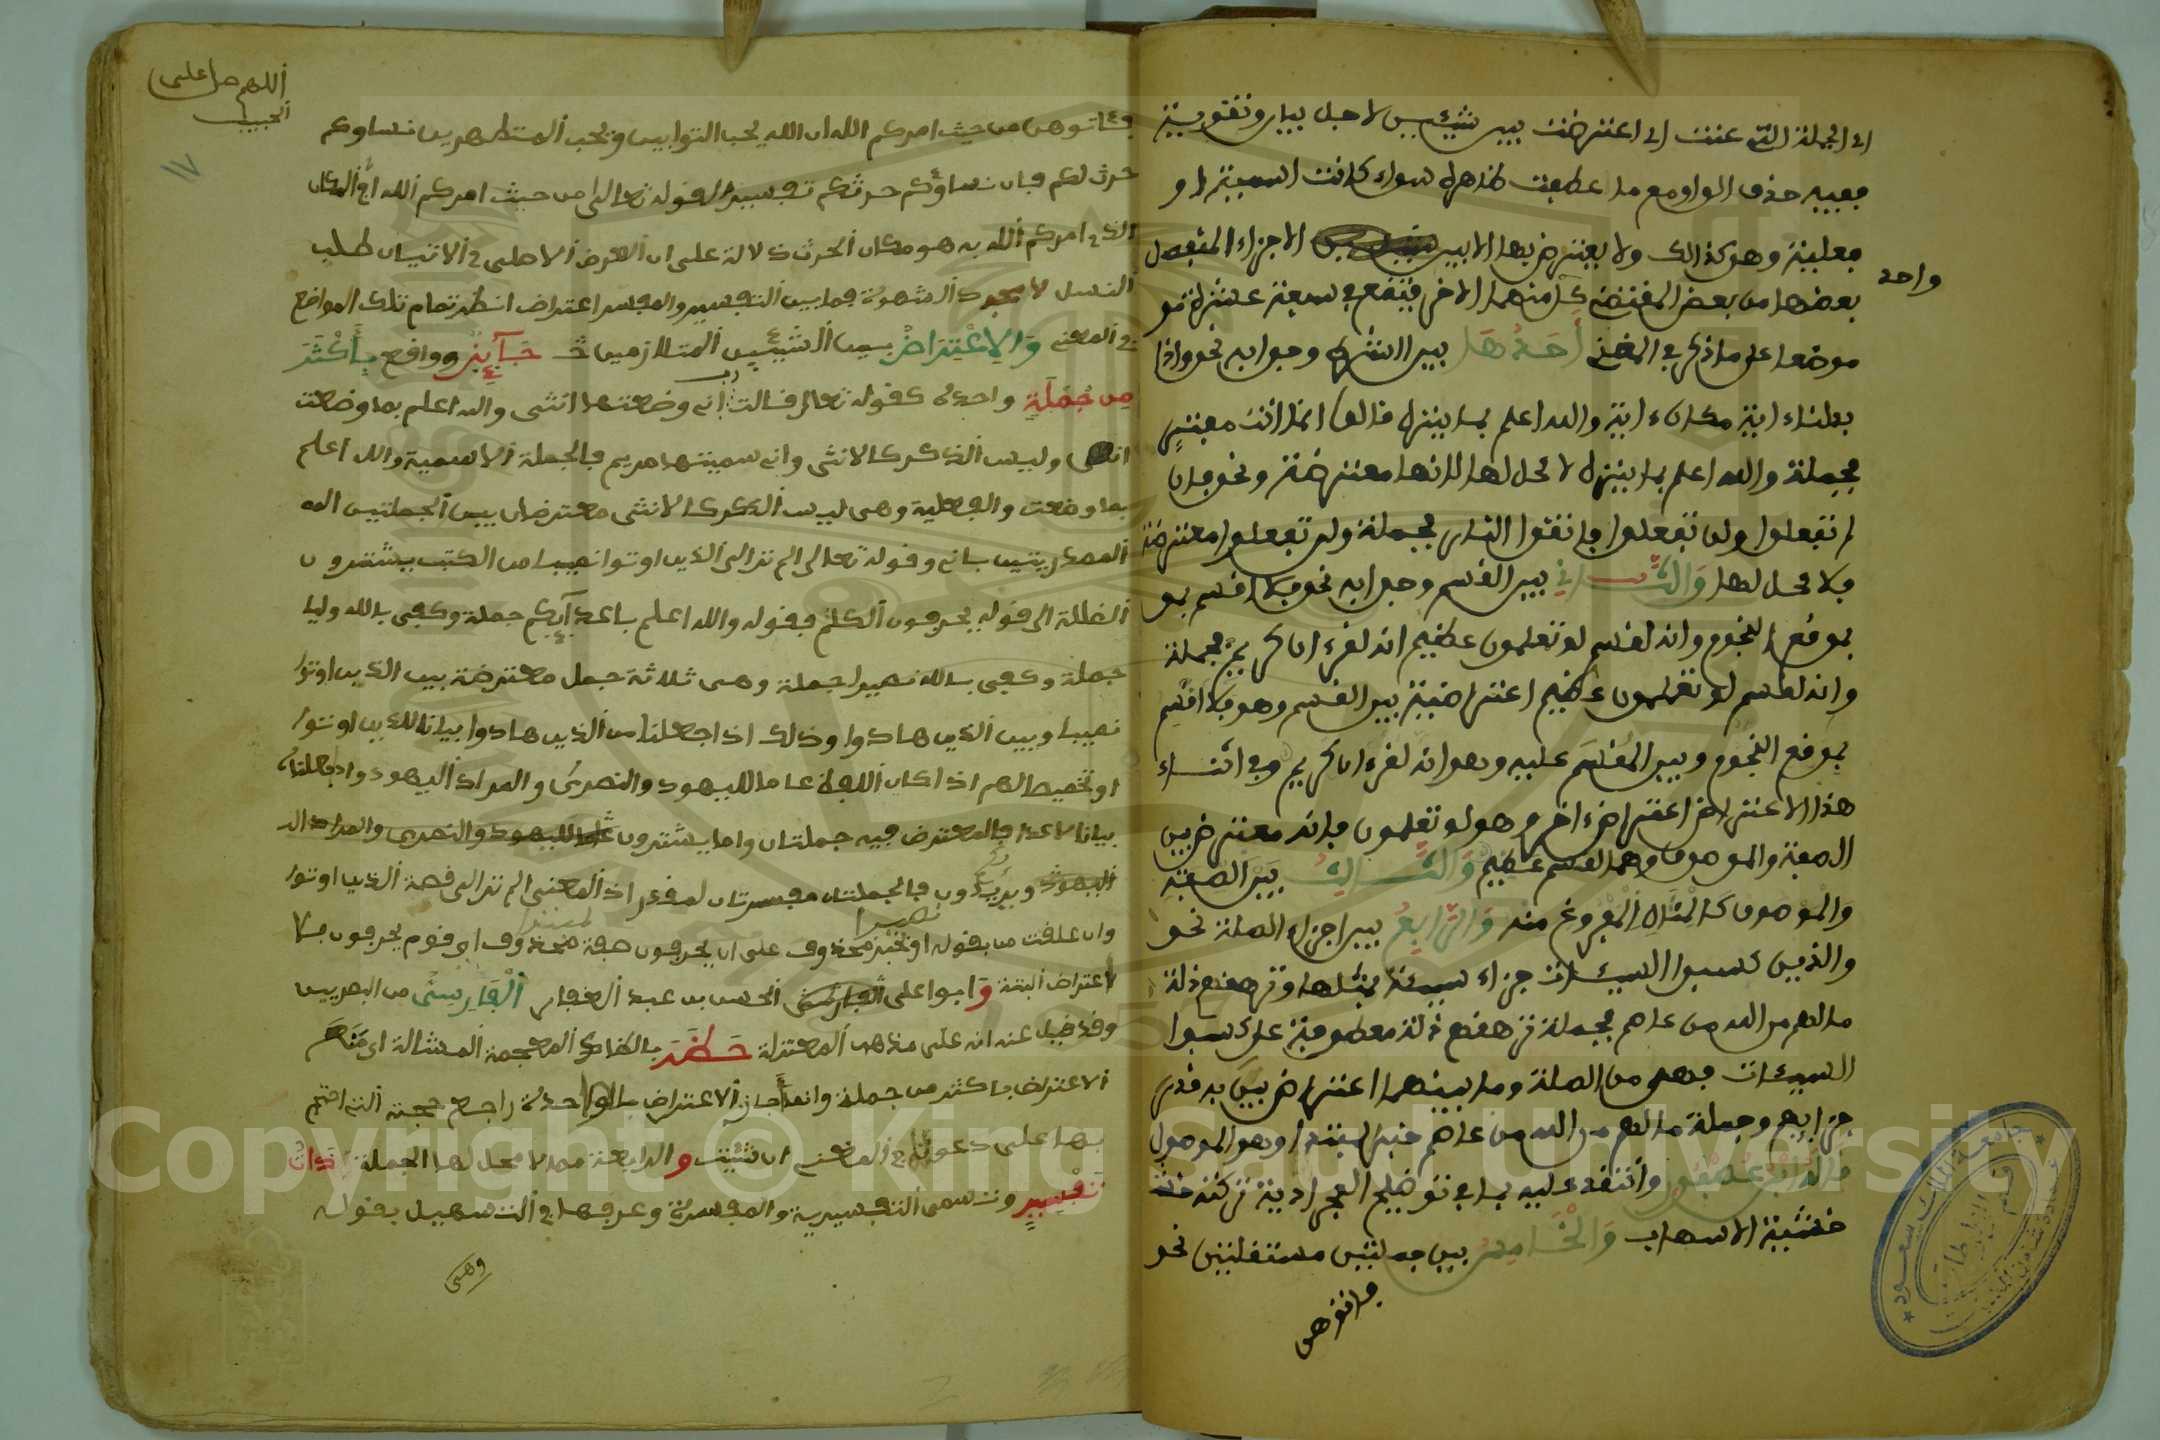 اي الجملة التي عنت اي اعترضت بين شيئين لاجل بيان وتقوية
ففيه حذف الواو مع ما عطفت ظاهره سواء كانت اسمية او
فعلية وهو كذالك ولا يعترض بها الا بين الاجزاء المنفصل
واحد
بعضها من بعض المقتضي كل منهما الاخر فتقع في سبعة عشر
موضعا على ما ذكر في المغني أحدها بين الشرط وجوابه نحو واذا
بدلناء اية مكان ءاية والله اعلم بما ينزل قالوا انما انت مفتر
فجملة والله اعلم بما ينزل لا محل لها لانها معترضة ونحو فان
لم تفعلوا ولن تفعلوا فاتقوا النار فجملة ولن تفعلوا معترضة
ولا محل لها والثاني بين القسم وجوابه نحو فلا اقسم بمو
بموقع النجوم وانه لقسم لو تعلمون عظيم انه لقرءان كريم فجملة
وانه لقسم لو تعلمون عظيم اعتراضية بين القسم وهو فلا اقسم
بموقع النجوم وبين المقسم عليه وهو انه لقرءان كريم وفي اثناء
هذا الاعتراض اعتراض ءاخر وهو لو تعلمون فانه معترض بين
الصفة والموصوف وهما لقسم عظيم والثالث بين الصفة
والموصوف كالمثال المفروغ منه والرابع بين اجزاء الصلة نحو
والذين كسبوا السيئات جزاء سيئة بمثلها وترهقهم ذلة
مالهم من الله من عاصم فجملة ترهقهم ذلة معطوفة على كسبوا
السيئات فهي من الصلة وما بينهما اعتراض بين به قدر
جزايهم وجملة مالهم من الله من عاصم خبر المبتدا وهو الموصول
قاله ابن عصفور وانتقد عليه بما في توضيح العجرادية تركته
خشية الاسهاب والخامس بين جملتين مستقلتين نحو
فاتوهن
اللهم صل على
الحبيب
١٧
فاتوهن من حيث امركم الله ان الله يحب التوابين ويحب المتطهرين نساوكم
حرث لكم فان نساؤكم حرث لكم تفسير لقوله تعالى من حيث امركم الله اي المكان
الذي امركم الله به هو مكان الحرث دلالة على ان الغرض الاصلي في الاتيان طلب
النسل لا مجرد الشهوة فما بين التفسير والمفسر اعتراض انظر تمام تلك المواضع
في المغني والاعتراض بين الشيئين المتلازمين جائز وواقع بأكثر
من جملة واحدة كقوله تعالى قالت رب اني وضعتها انثى والله اعلم بما وضعت
وليس الذكر كالانثى واني سميتها مريم فالجملة الاسمية والله اعلم
بما وضعت والفعلية وهي ليس الذكر كالانثى معترضان بين الجملتين
المصدريتين باني وقوله تعالى الم تر الى الذين اوتوا نصيبا من الكتب يشترون
الضللة الى قوله يحرفون الكلم فقوله والله اعلم باعدآيكم جملة وكفى بالله وليا
جملة وكفى بالله نصيرا جملة وهي ثلاثة جمل معترضة بين الذين اوتوا
نصيبا وبين الذين هادوا وذلك اذا جعلنا من الذين هادوا بيانا للذين اوتوا
او تخصيصا لهم اذا كان اللفظ عاما لليهود والنصرى والمراد اليهود واذا جعلناه
بيانا لاعدا فالمعترض فيه جملتان واما يشترون
ويريدون فالجملتان مفسرتان لمقدر اذ المعنى الم تر الى قصة الذين اوتوا
وان علقت من بقوله نصيرا او بخبر محذوف على ان يحرفون صفة لمبتدا محذوف اي قوم يحرفون فلا
اعتراض البتة وابوا على الحسن بن عبد الغفار الفارسي من البصريين
وقد قيل عنه انه على مذهب المعتزلة حظر بالظاء المعجمة المشالة اي منع
الاعتراض باكثر من جملة وانما جاز الاعتراض بالواحدة راجع حجته التي احتج
بها على دعواه في المغني ان شئت والرابعة مما لا محل لها الجملة ذات
تفسير وتسمى التفسيرية والمفسرة وعرفها في التسهيل بقوله
وهي